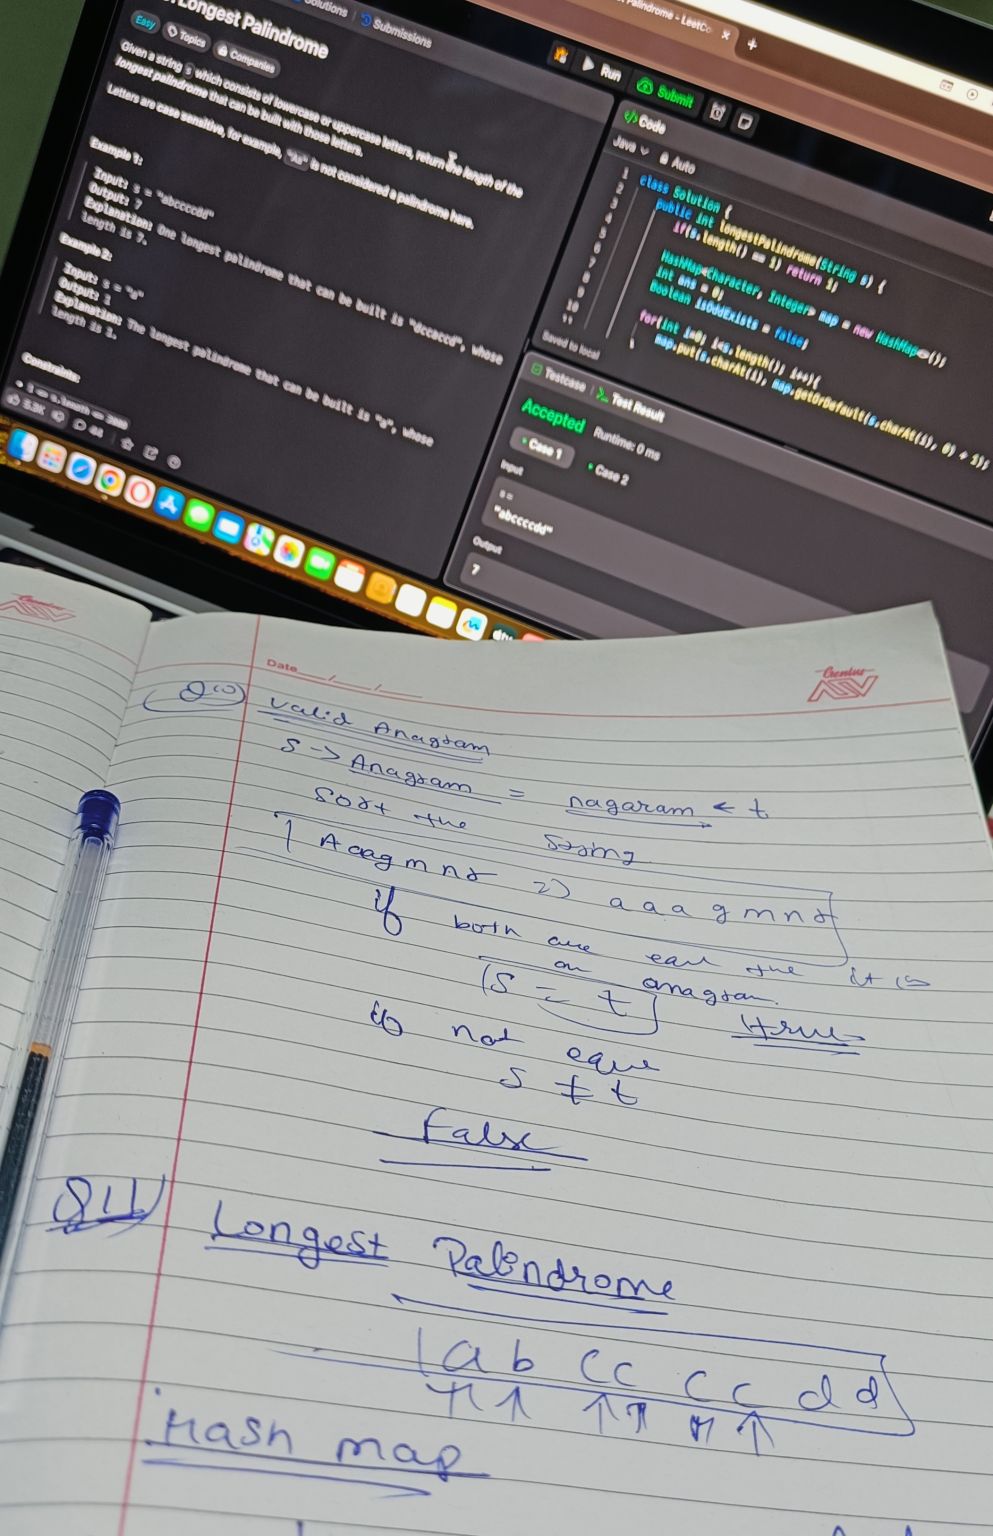 Longest Palindrome
Solutions
Submissions
Easy
Topics
Companies
Given a string s which consists of lowercase or uppercase letters, return the length of the
longest palindrome that can be built with those letters.
Letters are case sensitive, for example, "Aa" is not considered a palindrome here.
Example 1:
Input: s = "abccccdd"
Output: 7
Explanation: One longest palindrome that can be built is "dccaccd", whose
length is 7.
Example 2:
Input: s = "a"
Output: 1
Explanation: The longest palindrome that can be built is "a", whose
length is 1.
Constraints:
1 <= s.length <= 2000
Palindrome - LeetCo
Run
Submit
</> Code
Java
Auto
1 class Solution {
2 public int longestPalindrome(String s) {
3 if(s.length() == 1) return 1;
4
5 HashMap<Character, Integer> map = new HashMap<>();
6 int ans = 0;
7 Boolean isOddExists = false;
8
9 for(int i=0; i<s.length(); i++){
10 map.put(s.charAt(i), map.getOrDefault(s.charAt(i), 0) + 1);
11
Saved to local
Testcase
Test Result
Accepted
Runtime: 0 ms
Case 1
Case 2
Input
s =
"abccccdd"
Output
7
Date
Valid Anagram
s -> Anagram = nagaram <- t
Sort the String
Aaagmnr => aaagmnr
if both are the it is
an anagram.
s = t
true
not
s ≠ t
False
Q11)
Longest Palindrome
ab cc cc dd
Hash map